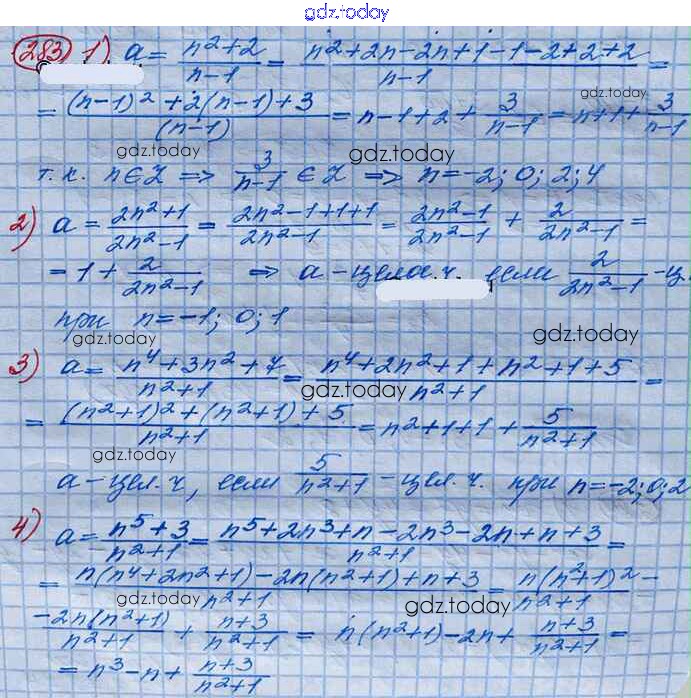 gdz.today
283 1) a = (n²+2)/(n-1) = (n²+2n-2n+1-1-2+2+2)/(n-1) =
gdz.today
= ((n-1)²+2(n-1)+3)/(n-1) = n-1+2+3/(n-1) = n+1+3/(n-1)
gdz.today gdz.today
т.к. n∈Z ⇒ 3/(n-1) ∈ Z ⇒ n=-2; 0; 2; 4
2) a = (2n²+1)/(2n²-1) = (2n²-1+1+1)/(2n²-1) = (2n²-1)/(2n²-1) + 2/(2n²-1) =
= 1 + 2/(2n²-1) ⇒ a-целая.ч. если 2/(2n²-1) -ц.
при n=-1; 0; 1
gdz.today gdz.today
3) a = (n⁴+3n²+7)/(n²+1) = (n⁴+2n²+1+n²+1+5)/(n²+1) =
= ((n²+1)²+(n²+1)+5)/(n²+1) = n²+1+1+5/(n²+1)
gdz.today
a-цел.ч, если 5/(n²+1) -цел.ч. при n=-2; 0; 2
4) a = (n⁵+3)/(n²+1) = (n⁵+2n³+n-2n³-2n+n+3)/(n²+1) =
= (n(n⁴+2n²+1)-2n(n²+1)+n+3)/(n²+1) = n(n²+1)²/(n²+1) -
gdz.today gdz.today
-2n(n²+1)/(n²+1) + (n+3)/(n²+1) = n(n²+1)-2n+(n+3)/(n²+1) =
= n³-n+(n+3)/(n²+1)